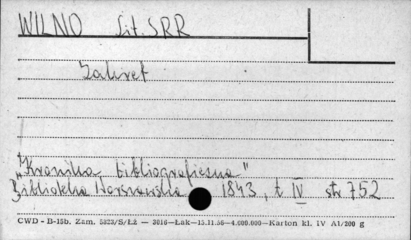 WILNO Lit. SRR
Zakret
"Kronika bibliograficzna"
Biblioteka Warszawska 1843, t. IV str 752
CWD - B-15b. Zam. 5823/S/Łż — 3016—Łak—15.11.56—4.000.000—Karton kl. IV A1/200 g